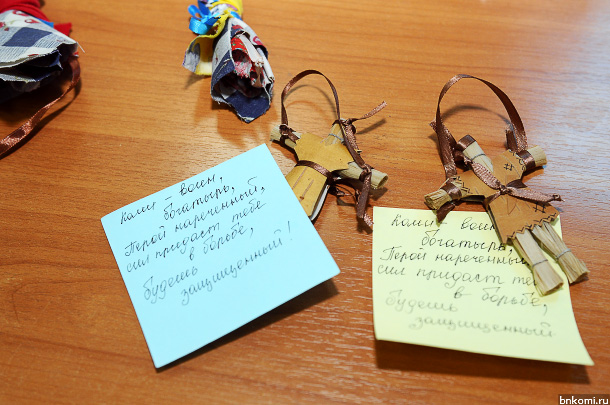 Коми – воин,
богатырь,
Герой нареченный,
сил придаст тебе
в борьбе,
будешь
защищенный!
Коми воин
богатырь,
Герой нареченный
сил придаст те
в борьбе,
будешь
защищенный
bnkomi.ru